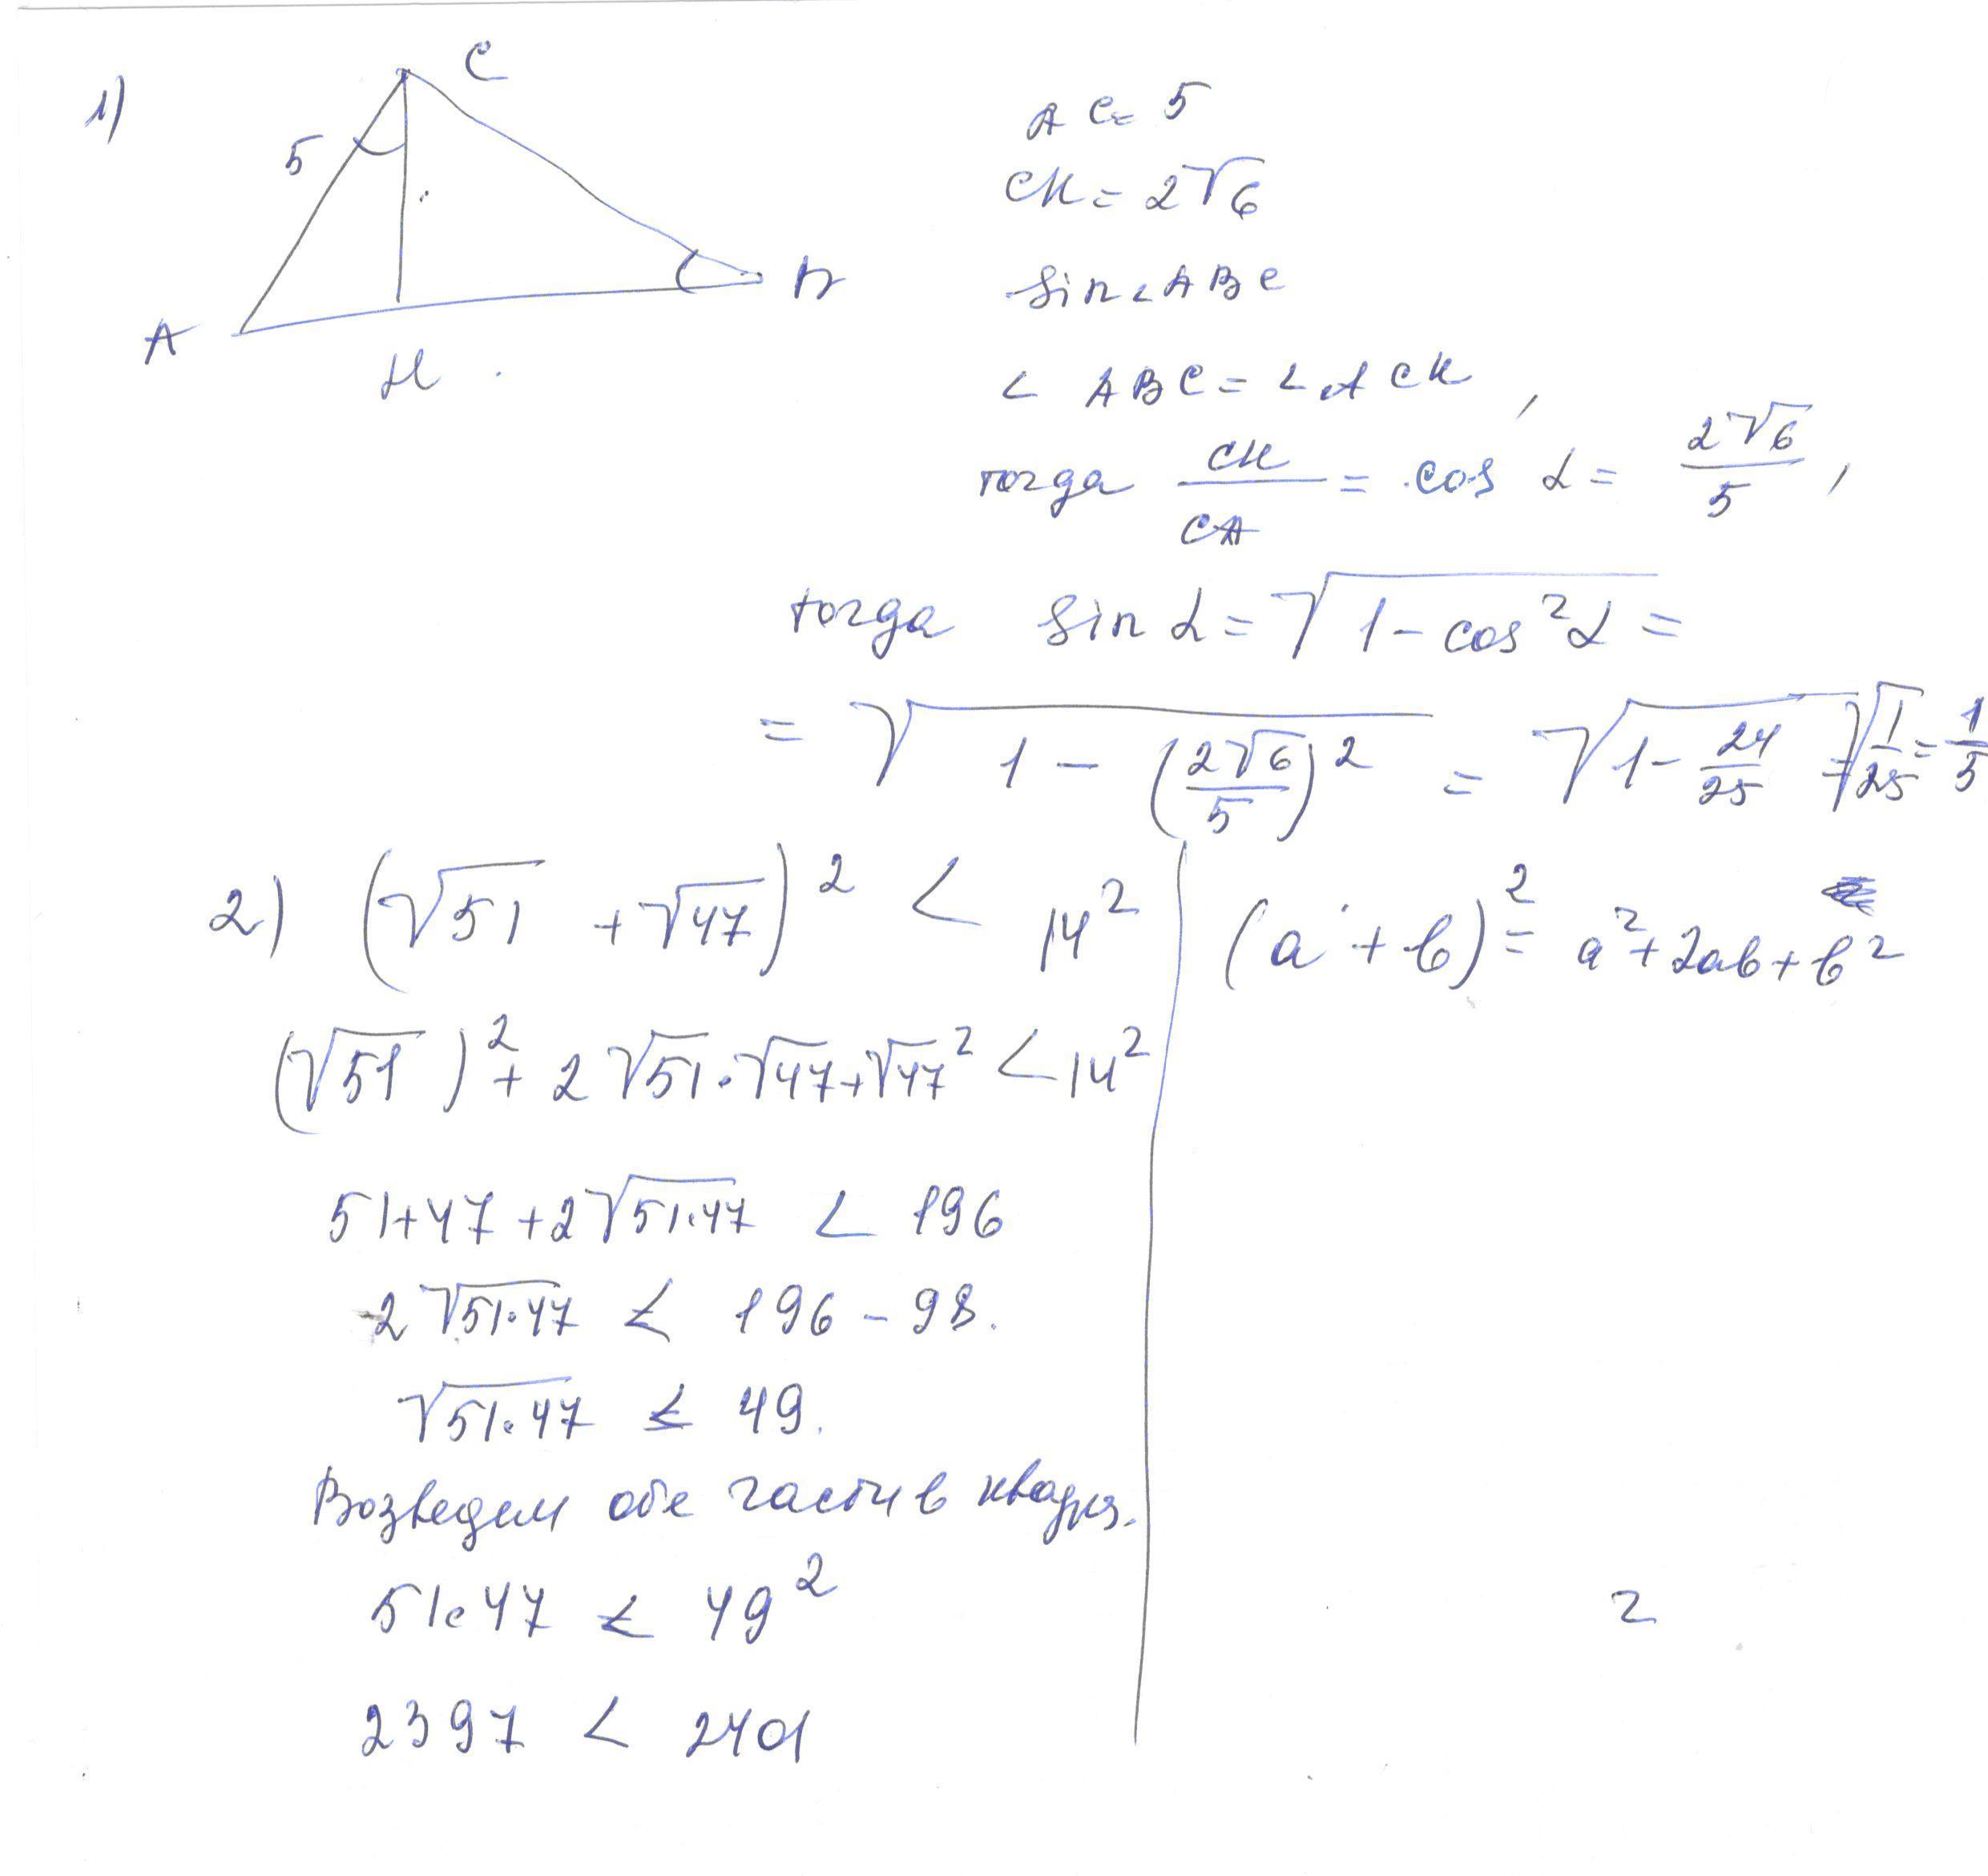 1)
C
5
A
H
B
AC = 5
CH = 2√6
sin ∠ABC
∠ABC = ∠ACH,
тогда CH/CA = cos α = 2√6/5,
тогда sin α = √(1 - cos²α) =
= √(1 - (2√6/5)²) = √(1 - 24/25) = √(1/25) = 1/5
2) (√51 + √47)² < 14²
(a + b)² = a² + 2ab + b²
(√51)² + 2√51·√47 + √47² < 14²
51+47 + 2√51·47 < 196
2√51·47 < 196 - 98.
√51·47 < 49.
Возведем обе части в квадрат.
51·47 < 49²
2397 < 2401
2